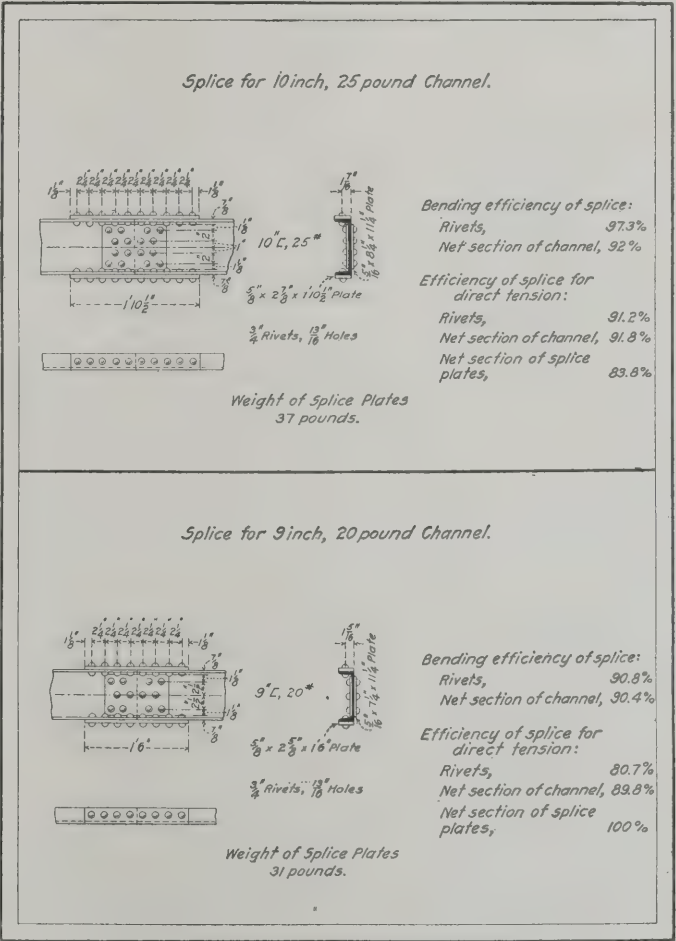 Splice for 10 inch, 25 pound Channel.
2¼" 2¼" 2¼" 2¼" 2¼" 2¼" 2¼" 2¼" 2¼"
1⅛" 1⅛"
⅞"
1⅛"
2"
1"
2"
1⅛"
⅞"
1'10½"
10"[, 25#
1⅞"
5/16" x 8¼" x 11¼" Plate
⅝" x 2⅞" x 1'10½" Plate
¾" Rivets, 13/16" Holes
Weight of Splice Plates
37 pounds.
Bending efficiency of splice:
Rivets, 97.3%
Net section of channel, 92%
Efficiency of splice for
direct tension:
Rivets, 91.2%
Net section of channel, 91.8%
Net section of splice
plates, 83.8%
Splice for 9 inch, 20 pound Channel.
2¼" 2¼" 2¼" 2¼" 2¼" 2¼" 2¼"
1⅛" 1⅛"
⅞"
1⅛"
1⅛"
⅞"
1'6"
9"[, 20#
1 5/16"
5/16" x 7¼" x 11¼" Plate
⅝" x 2⅝" x 1'6" Plate
¾" Rivets, 13/16" Holes
Weight of Splice Plates
31 pounds.
Bending efficiency of splice:
Rivets, 90.8%
Net section of channel, 90.4%
Efficiency of splice for
direct tension:
Rivets, 80.7%
Net section of channel, 89.8%
Net section of splice
plates, 100%